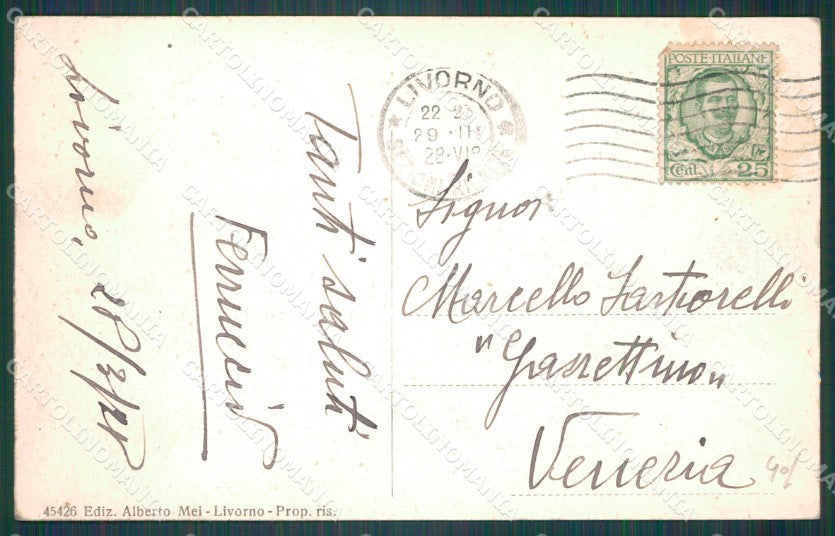 Livorno, 28/3/28
Tanti saluti
Ferruccio
LIVORNO
22-23
29·III
28·VI
POSTE·ITALIANE
Cent. 25
Signor
Marcello Sartorelli
"Gazzettino"
Venezia
45426 Ediz. Alberto Mei - Livorno - Prop. ris.
CARTOLINOMANIA